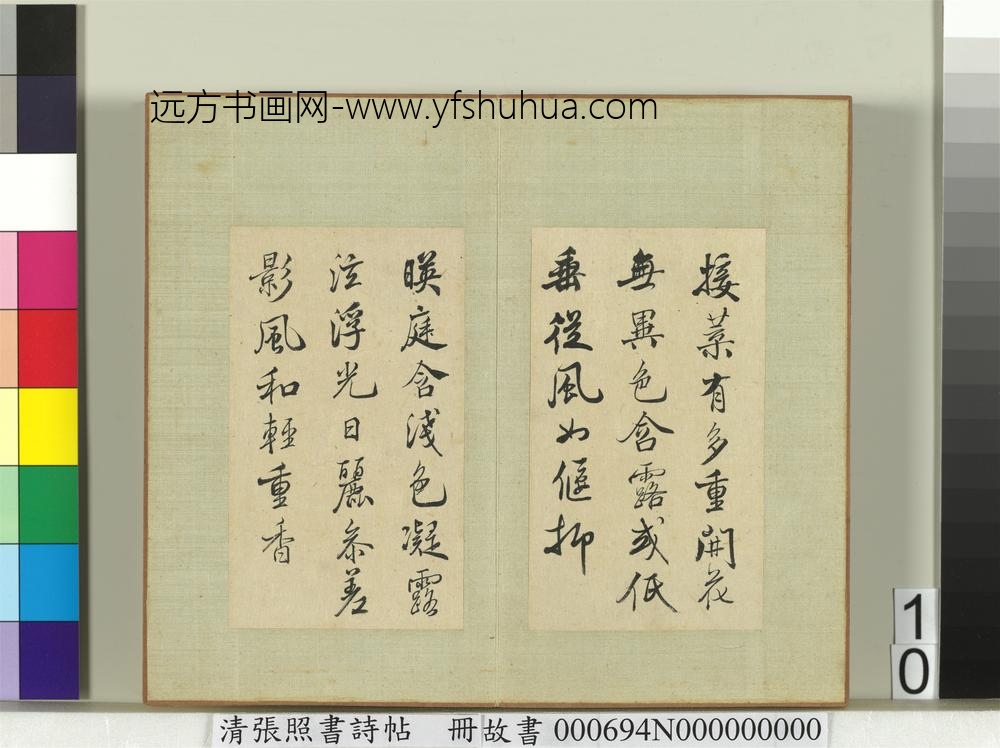 远方书画网-www.yfshuhua.com
接葉有多重開花
無異色含露或低
垂從風如偃抑
暎庭含淺色凝露
泫浮光日麗參差
影風和輕重香
10
清張照書詩帖 冊故書 000694N000000000